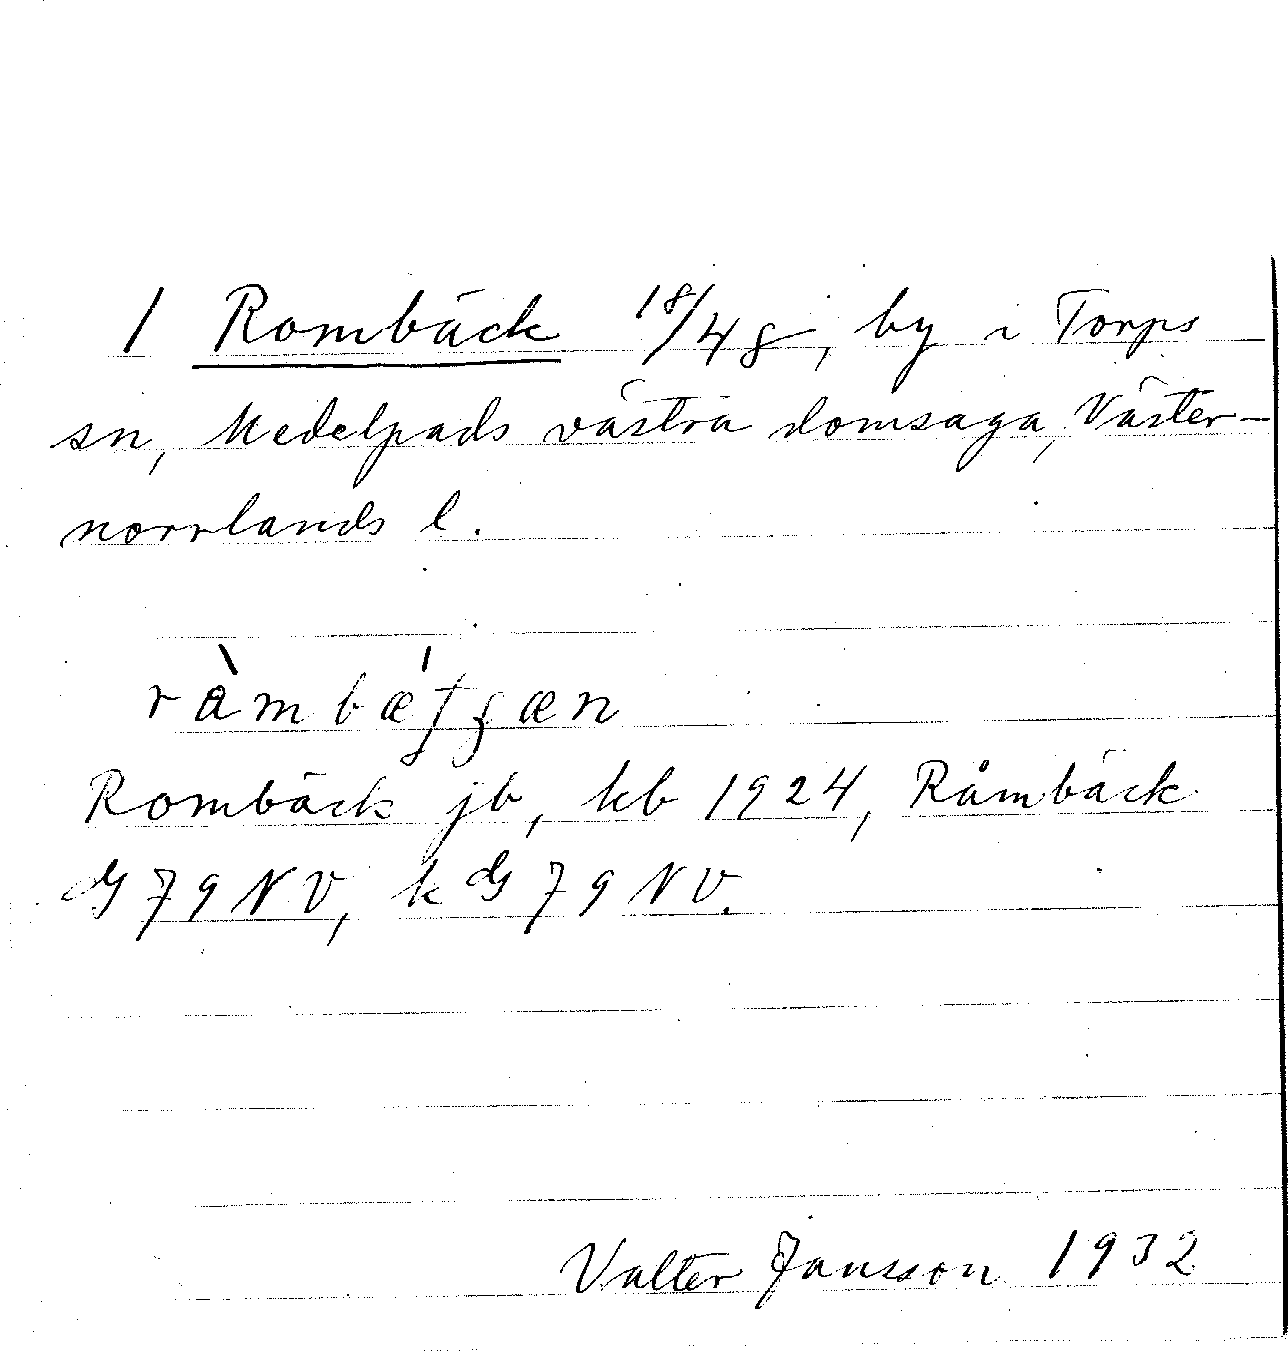 1 Rombäck 18/48, by i Torps
sn, Medelpads västra domsaga, Väster-
norrlands l.
Rombäck jb, kb 1924, Råmbäck
G 79 NV, k G 79 NV.
Valter Jansson 1932